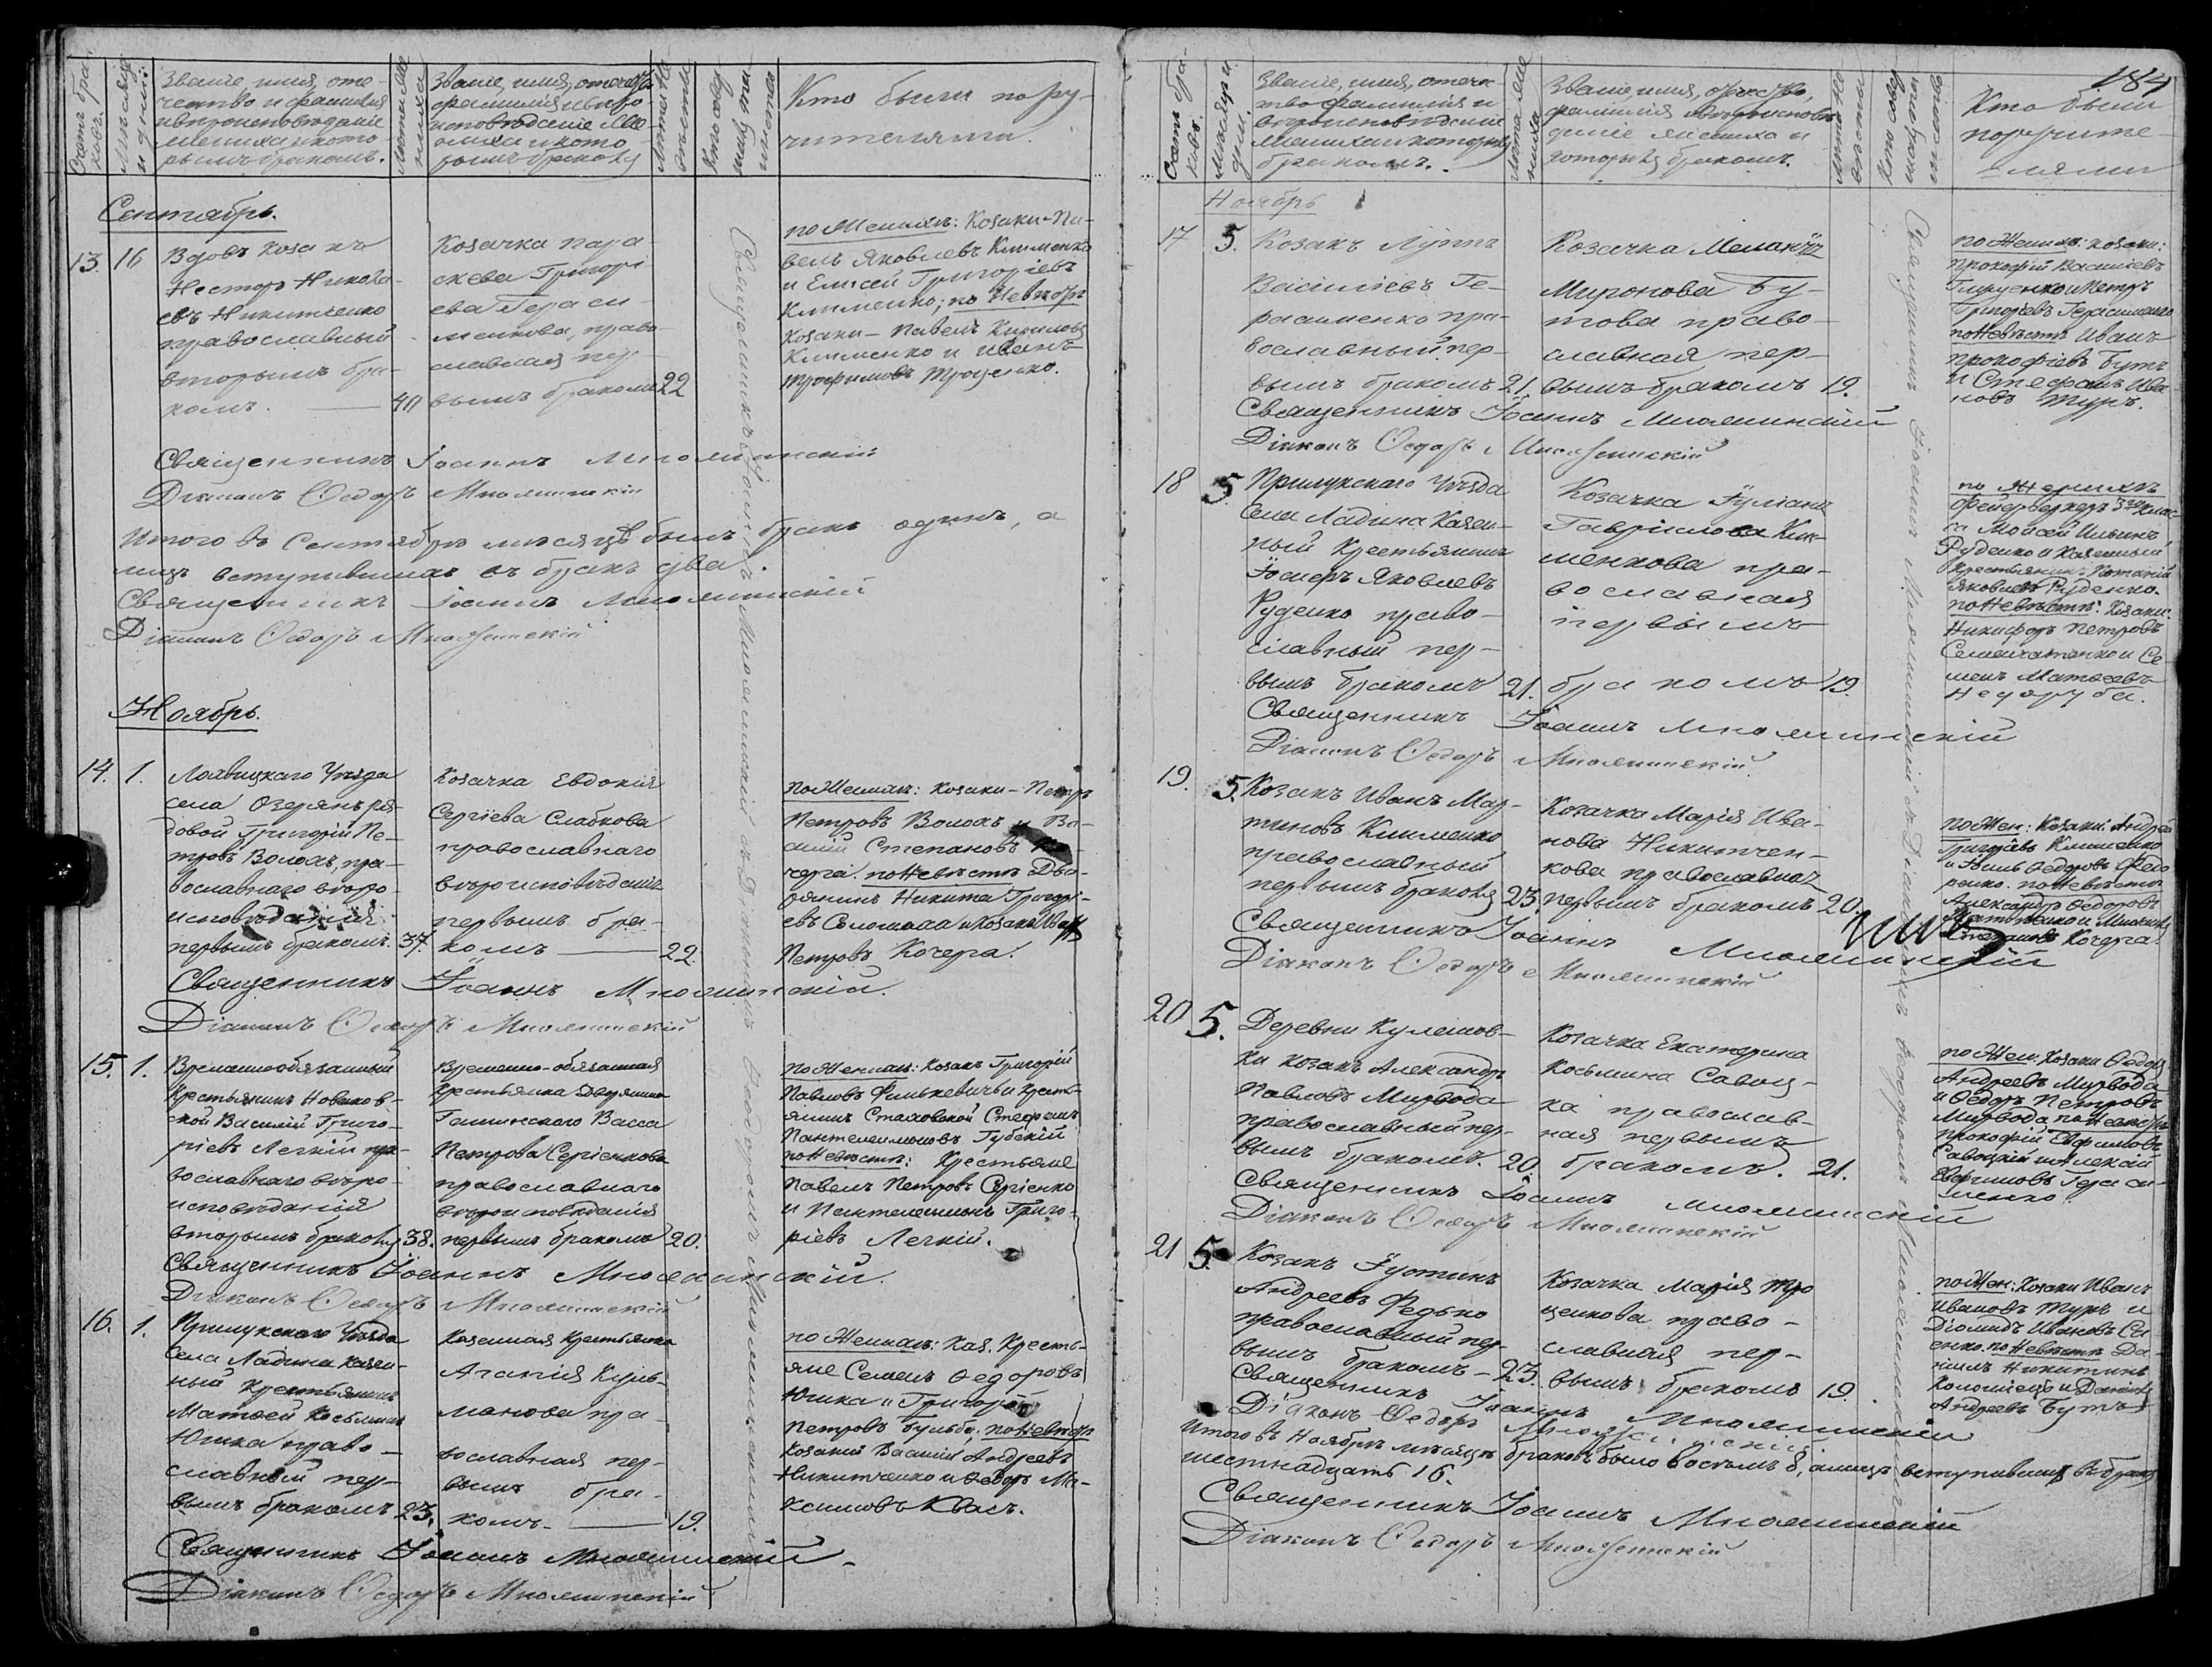 Счетъ бра-
ковъ.
Мѣсяцъ
и дни:
Званіе, имя, оте-
чество и фамилія
и вѣроисповѣданіе
жениха и кото
рымъ бракомъ.
Лѣта же
ниха
Званіе, имя, отечество
фамилія и вѣро-
исповѣданіе
и кото-
рымъ бракомъ
Лѣта не
вѣсты
Кто совер
шилъ
таинство
Кто были пору-
чителями.
Сентябрь.
13. 16
Вдовъ козакъ
Несторъ Никола-
евъ Никитченко
православный
вторымъ бра-
комъ. — 40
Козачка Пара
скева Григорі
ева Гераси-
менкова, право-
славная пер-
вымъ бракомъ 22
по Женихѣ: Козаки - Па-
велъ Яковлевъ Клименко
и Елисей Григоріевъ
Клименко; по Невѣстѣ
Козаки - Павелъ Кириловъ
Клименко и Иванъ
Трофимовъ Троценко.
Священникъ Іоаннъ
Діаконъ Ѳедоръ
Итого въ Сентябрѣ мѣсяцѣ былъ бракъ одинъ, а
лицъ вступившихъ въ бракъ два.
Священникъ Іоаннъ
Діаконъ Ѳедоръ
Ноябрь.
14. 1.
Лохвицкаго Уѣзда
села Озерянъ ря-
довой Григорій Пе-
тровъ Волохъ, пра-
вославнаго вѣро-
исповѣданія
первымъ бракомъ. 37.
Козачка Евдокія
Сергіева Слабкова
православнаго
вѣроисповѣданія
первымъ бра-
комъ — 22.
по Женихѣ: козаки - Петръ
Петровъ Волохъ и Ва-
силій Степановъ Ко-
черга. по Невѣстѣ Дво-
рянинъ Никита Григорі-
евъ Соломаха и козакъ
Петровъ Кочерга.
Священникъ Іоаннъ
Діаконъ Ѳедоръ
15. 1.
Временнообязанный
Крестьянинъ Новиков-
ской Василій Григо-
ріевъ Легкій пра-
вославнаго вѣро-
исповѣданія
вторымъ бракомъ 38.
Временно-обязанная
Крестьянка Дворянина
Васса
Петрова Сергіенкова
православнаго
вѣроисповѣданія
первымъ бракомъ 20.
по Женихѣ: Козакъ Григорій
Павловъ Филькевичъ и кресть-
янинъ Стаховской Стефанъ
Пантелеимоновъ Губскій
по Невѣстѣ: Крестьяне
Павелъ Петровъ Сергіенко
и Пантелеимонъ Григо-
ріевъ Легкій.
Священникъ Іоаннъ
Діаконъ Ѳедоръ
16. 1.
Прилукскаго Уѣзда
Села Ладина казен-
ный крестьянинъ
Матвей Косьминъ
Юшка право-
славный пер-
вымъ бракомъ 23.
Казенная крестьянка
Агапія Кузь-
манова пра-
вославная пер-
вымъ бра-
комъ. — 19.
по Женихѣ: Каз. Кресть-
яне Семенъ Ѳедоровъ
Юшка и Григорій
Петровъ Бульба. по Невѣстѣ
Козаки Василій Андреевъ
Никитченко и Ѳедоръ Ма-
ксимовъ Квасъ.
Священникъ Іоаннъ
Діаконъ Ѳедоръ
184
Счетъ бра-
ковъ.
Мѣсяцъ и
дни.
Званіе, имя, отече-
тво фамилія и
вѣроисповѣданіе
жениха и которымъ
бракомъ.
Лѣта же
ниха
Званіе, имя, отечество,
фамилія
которымъ бракомъ.
Лѣта не
вѣсты
Кто совер
Кто были
поручите-
лями
Ноябрь
17 5.
Козакъ Лупъ
Василіевъ Ге-
расименко пра-
вославный пер-
вымъ бракомъ 21.
Козачка Меланія
Миронова Бу-
това право-
славная пер-
вымъ бракомъ 19.
по Женихѣ: козаки:
Прокофій Василіевъ
и Петръ
Григоріевъ Герасименко
по Невѣстѣ Иванъ
Прокофіевъ Бутъ
и Стефанъ Ива-
новъ Туръ.
Священникъ Іоаннъ
Діаконъ Ѳедоръ
18 5.
Прилукскаго Уѣзда
Села Ладина Казен-
ный Крестьянинъ
Іосифъ Яковлевъ
Руденко право-
славный пер-
вымъ бракомъ 21.
Козачка Іуліанія
Гавріилова Кли-
менкова пра-
вославная
первымъ
бракомъ 19.
по Женихѣ
Фейерверкеръ 3го клас-
са Мойсей Ильинъ
Руденко и Казенный
крестьянинъ
Яковлевъ Руденко.
по Невѣстѣ: Козаки:
Никифоръ Петровъ
и Се-
менъ Матвеевъ
Недоруба.
Священникъ Іоаннъ
Діаконъ Ѳедоръ
19. 5.
Козакъ Иванъ Мар-
тиновъ Клименко
православный
первымъ бракомъ 23.
Козачка Марія Ива-
нова Никитчен-
кова православная
первымъ бракомъ 20.
по Жен: Козаки: Андрей
Григоріевъ Клименко
Ѳедоровъ Федо
ренко. по Невѣстѣ
Александръ Ѳедоровъ
Степановъ Кочерга.
Священникъ Іоаннъ
Діаконъ Ѳедоръ
20 5.
Деревни Кулешов-
ки козакъ Александръ
Павловъ Мирвода
православный пер-
вымъ бракомъ. 20.
Козачка Екатерина
Косьмина Савиц-
ка православ-
ная первымъ
бракомъ. 21.
по Жен: Козаки Ѳедоръ
Андреевъ Мирвода
и Ѳедоръ Петровъ
Мирвода, по Невѣстѣ
Прокофій Евфимовъ
Савицкій и Алексій
Гераси-
менко.
Священникъ Іоаннъ
Діаконъ Ѳедоръ
21 5.
Козакъ Іустинъ
Андреевъ Федько
православный пер-
вымъ бракомъ - 23.
Козачка Марія Тро
ценкова право-
славная пер-
вымъ бракомъ 19.
по Жен: Козаки Иванъ
Ивановъ Туръ и
Діомидъ Ивановъ Си-
енко. по Невѣстѣ Да-
ніилъ Никитинъ
Коломіецъ и Даніилъ
Андреевъ Бутъ
Священникъ Іоаннъ
Діаконъ Ѳедоръ
Итого въ Ноябрѣ мѣсяцѣ браковъ было восемь 8, а лицъ вступившихъ въ бракъ
шестнадцать 16.
Священникъ Іоаннъ
Діаконъ Ѳедоръ